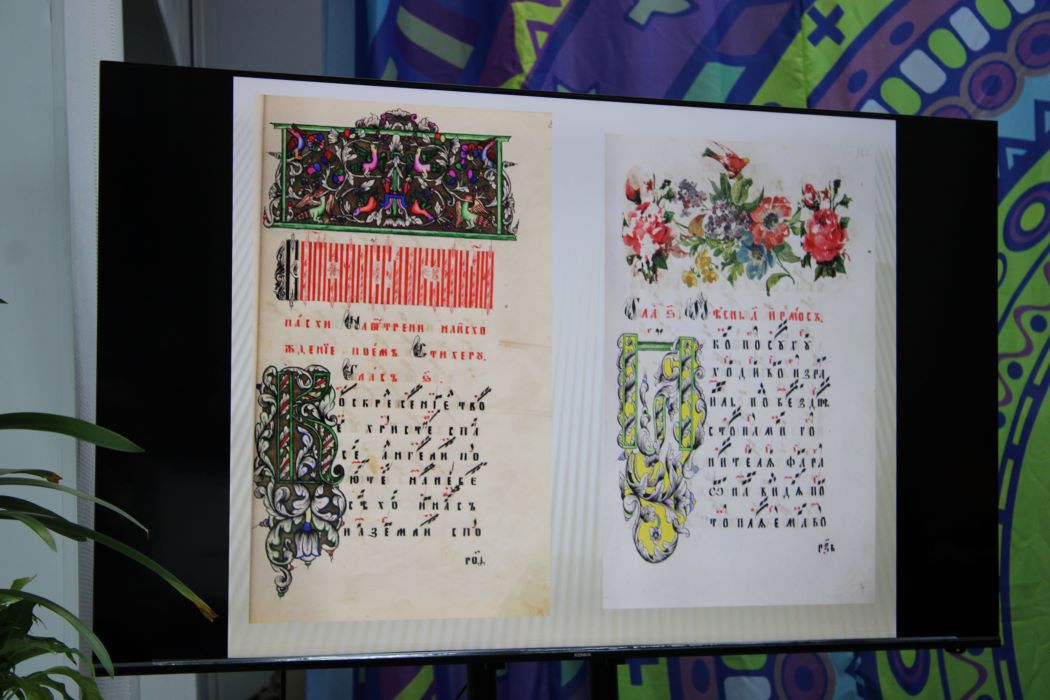 ПАСХИ НАОУТРЕНИ НАИСХО
ЖДЕНЇЕ ПОЕМЪ СТИХЕРУ.
ГЛАСЪ Ѕ.
ВОСКРЕСЕНІЕ ТВО
Е ХРИСТЕ СПА
СЕ АНГЕЛИ ПО
ЮТЕ НАНЕБЕ
СѢХО ИНАСЪ
НАЗЕМЛИ СПО
ГЛА Ѕ. ПѢСНЬ А ИРМОСЪ.
КО ПОСУХУ
ХОДИВО ИЗРА
ИЛЬ ПОБЕЗДНѢ
СТОПАМИ ГО
НИТЕЛѦ ФАРА
ѠНА ВИДѦ ПО
ТОПЛѦЕМА ВО